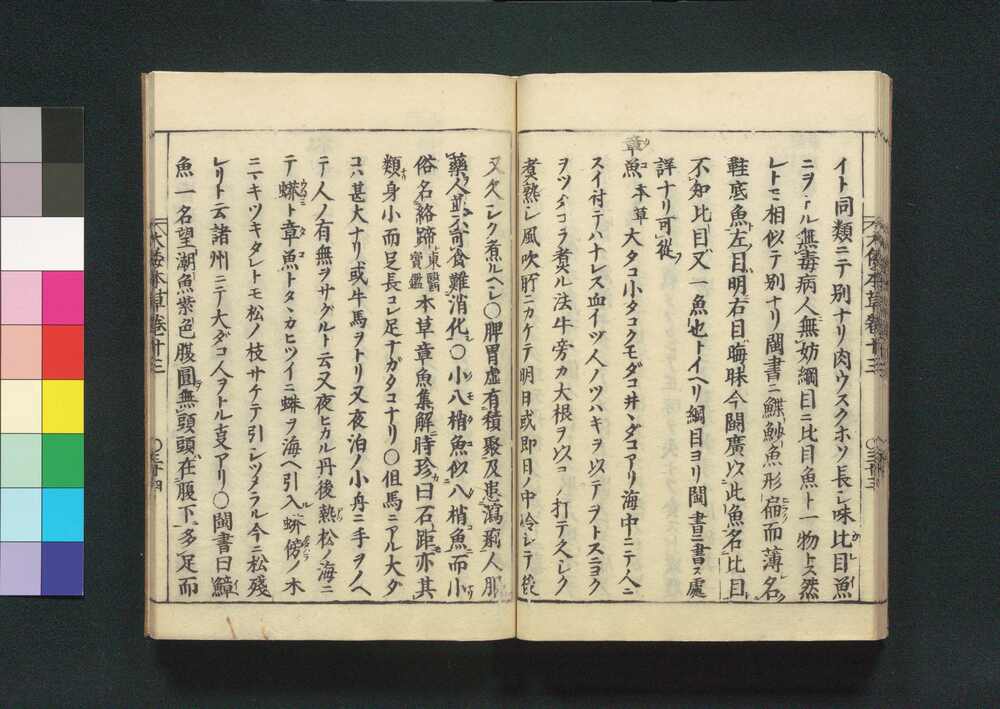 イト同類ニテ別ナリ肉ウスクホソ長シ味比目魚
ニヲトル無毒病人無妨綱目ニ比目魚ト一物トス然
レトモ相似テ別ナリ閩書ニ鰈魦魚形扁而薄名
鞋底魚左目明右目晦昧今閩廣以此魚名比目
不知比目又一魚也トイヘリ綱目ヨリ閩書ニ書ス處
詳ナリ可從
章魚 本草 大タコ小タコクモダコ井ヽダコアリ海中ニテ人ニ
スイ付テハナレス血イツ人ノツハキヲ以テヲトスニヨク
ヲツタコヲ煮ル法牛旁カ大根ヲ以コ打テ久シク
煮熟シ風吹所ニカケテ明日或即日ノ中冷シテ後
又久シク煮ルヘシ〇脾胃虚有積聚及患瀉痢人服
藥人並不可食難消化〇小八梢魚似八梢魚而小
俗名絡蹄 東醫寶鑑 本草章魚集解時珍曰石距亦其
類身小而足長コレ足ナガタコナリ〇但馬ニアル大ダ
コハ甚大ナリ或牛馬ヲトリ又夜泊ノ小舟ニ手ヲノヘ
テ人ノ有無ヲサグルト云又夜ヒカル丹後熱松ノ海ニ
テ蠎ト章魚トタヽカヒツイニ蛛ヲ海ヘ引入傍ノ木
ニマキツキタレトモ松ノ枝サケテ引シツメラル今ニ松殘
レリト云諸州ニテ大ダコ人ヲトル事アリ〇閩書曰鱆
魚一名望潮魚紫色腹圓無頭頭在腹下多足而
大倭本草卷十三 〇三十三
大倭本草卷十三 〇三十四